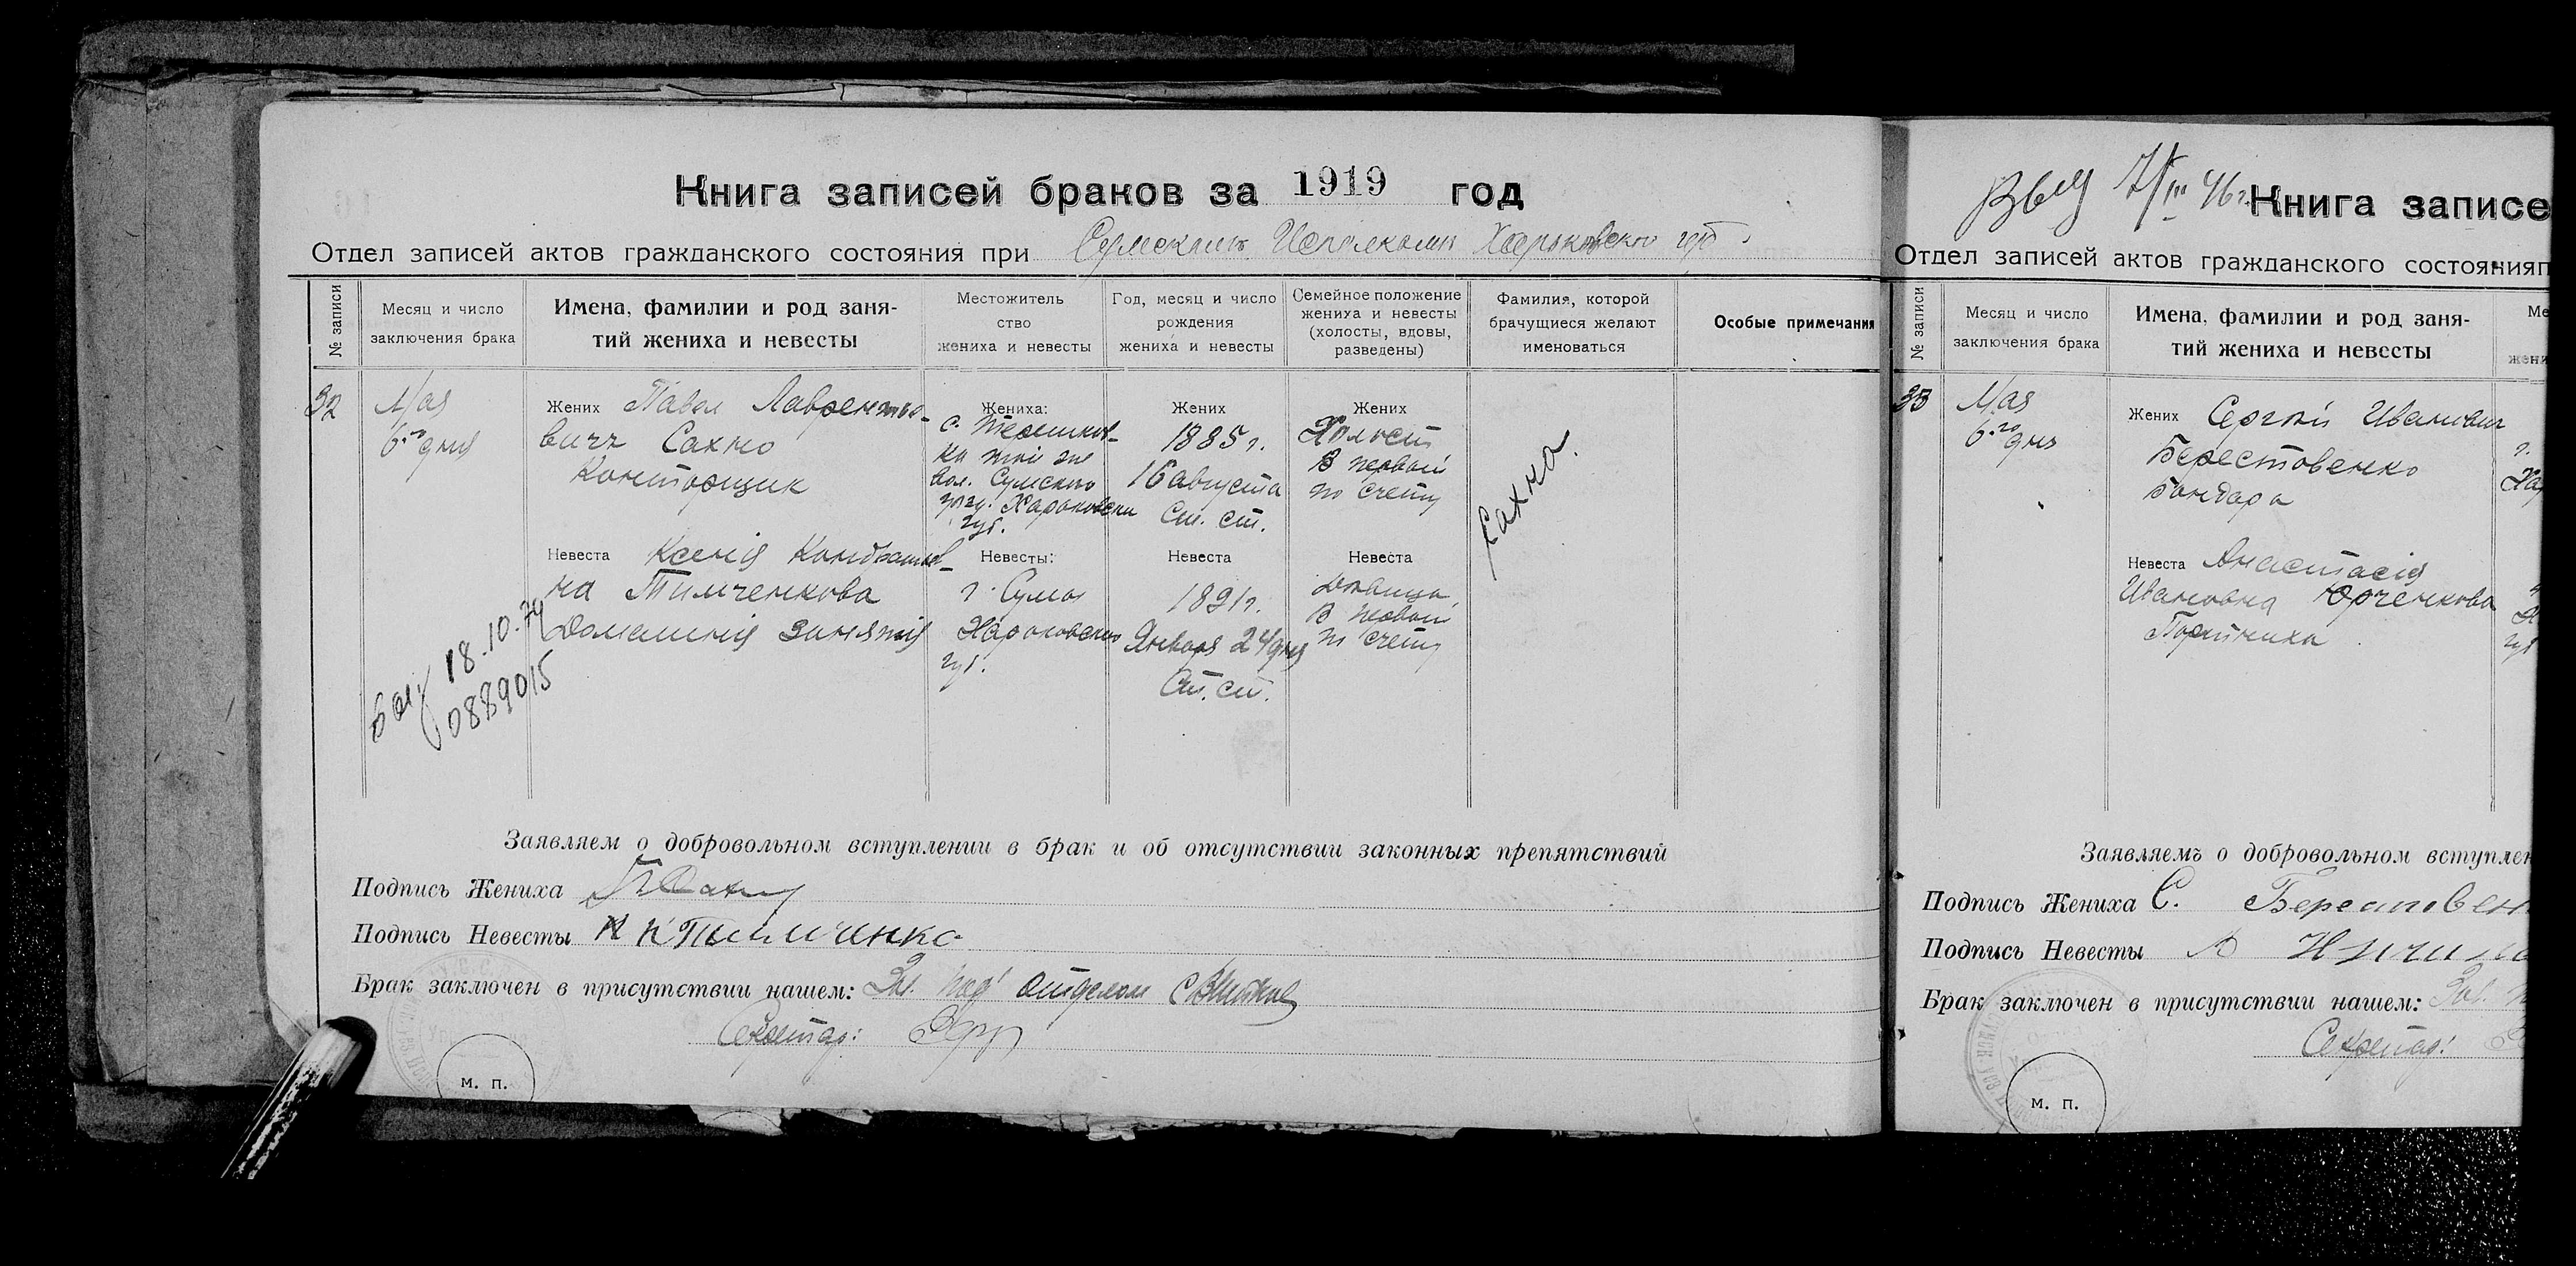 Книга записей браков за 1919 год
Отдел записей актов гражданского состояния при Сумском Исполкоме Харьковской губ.
№ записи
Месяц и число
заключения брака
Имена, фамилии и род заня-
тий жениха и невесты
Местожитель
ство
жениха и невесты
Год, месяц и число
рождения
жениха и невесты
Семейное положение
жениха и невесты
(холосты, вдовы,
разведены)
Фамилия, которой
брачущиеся желают
именоваться
Особые примечания
32
Мая
6го дня
Жених Павел Лаврентье-
вич Сахно
Конторщик
Жениха:
с.
вол. Сумского
уезд. Харьковской
губ.
Жених
1885 г.
16 августа
Ст. ст.
Жених
Холост
В первый
по счету
Сахно.
Невеста Ксенія Кондратов-
на Тимченкова
Домашнія занятія
Невесты:
г. Сумы
Харьковской
губ.
Невеста
1891 г.
Января 24 дня
Ст. ст.
Невеста
Девица
В первый
по счету
18.10.74
0889015
Заявляем о добровольном вступлении в брак и об отсутствии законных препятствий
Подпись Жениха П Сахно
Подпись Невесты К К Тимченко
Брак заключен в присутствии нашем: Зав. под отделом
Секретарь:
м. п.
7/III 46 г.
Книга записе
Отдел записей актов гражданского состоянияп
№ записи
Месяц и число
заключения брака
Имена, фамилии и род заня-
тий жениха и невесты
Ме
жени
33
Мая
6го дня
Жених Сергей Иванович
Берестовенко
Бондарь
г.
Хар
Невеста Анастасія
Ивановна Юрченкова
Портниха
Заявляемъ о добровольном вступлен
Подпись Жениха С. Берестовен
Подпись Невесты
Брак заключен в присутствии нашем: Зав.
Секретарь:
м. п.